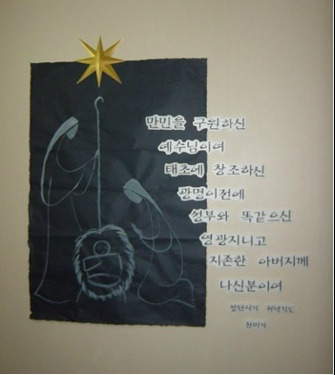 만민을 구원하신
예수님이여
태초에 창조하신
광명이전에
성부와 똑같으신
영광지니고
지존한 아버지께
나신분이여
성탄시기 저녁기도
찬미가